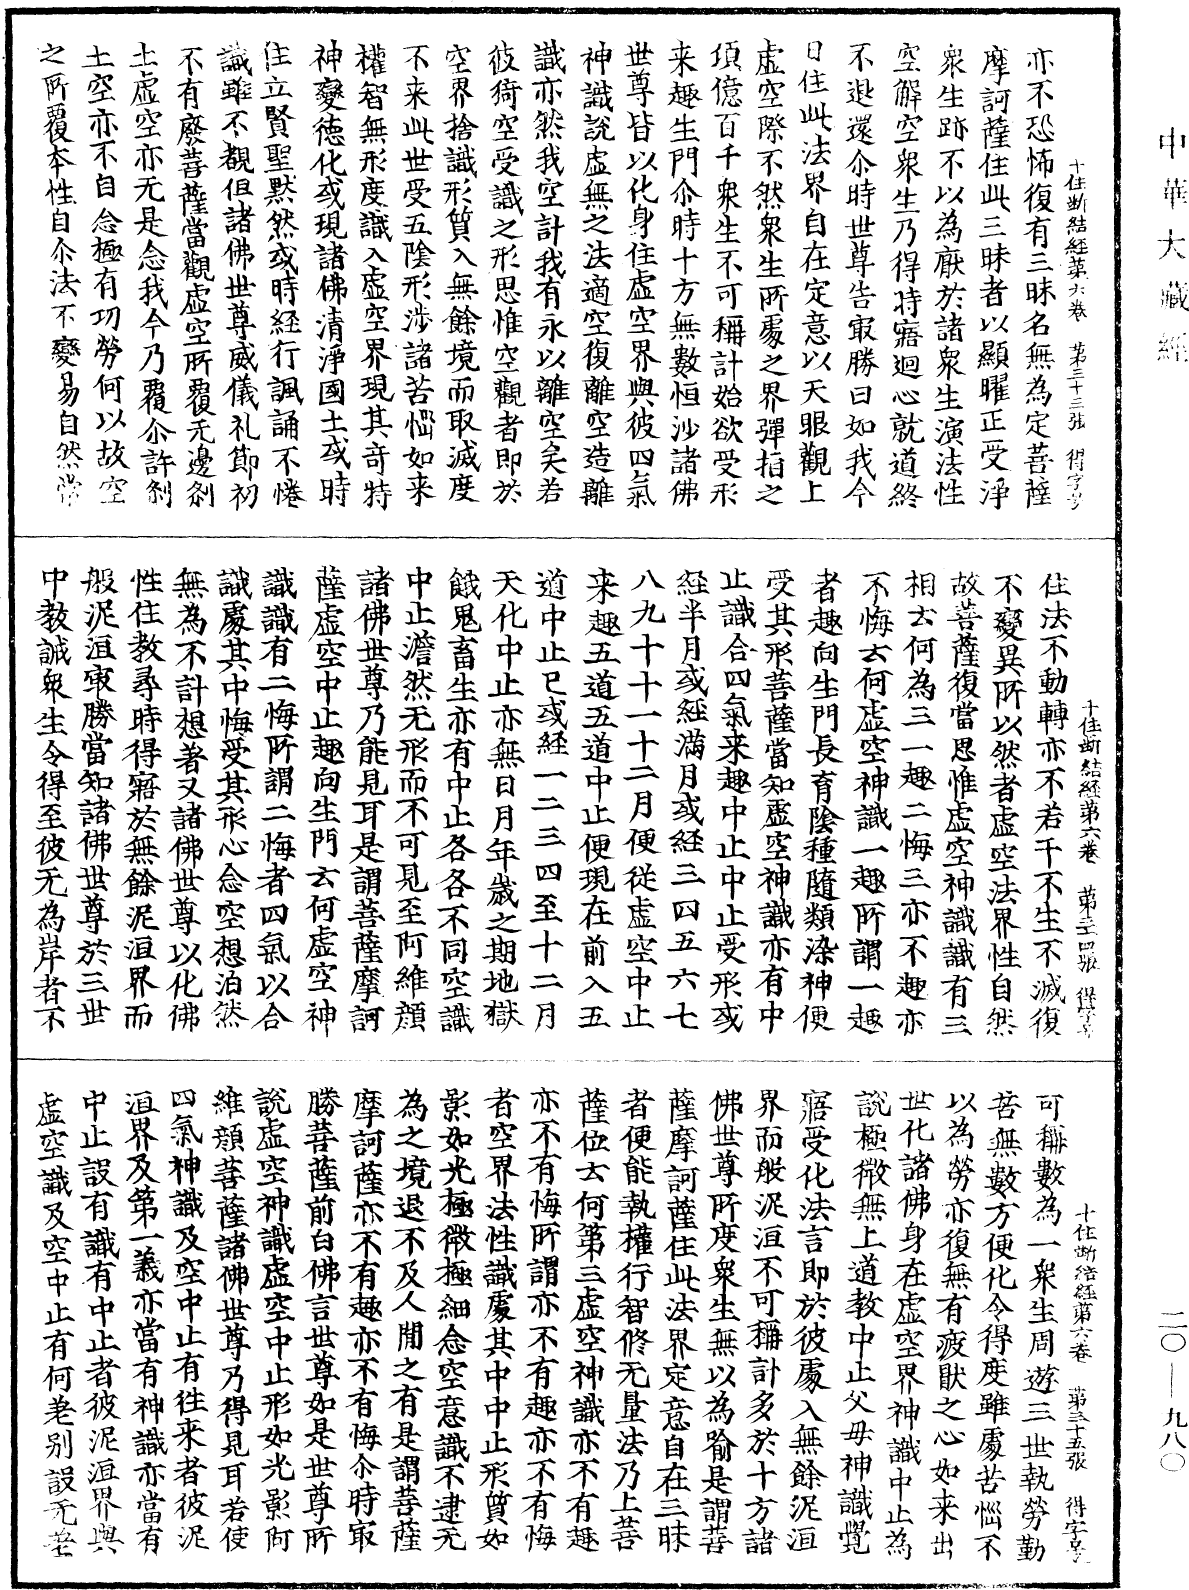 中華大藏經
亦不恐怖復有三昧名無為定菩薩
十住斷結經第六卷　第三十三張　得字号
摩訶薩住此三昧者以顯曜正受淨
衆生跡不以為厭於諸衆生演法性
空解空衆生乃得時寤迴心就道終
不退還尒時世尊告㝡勝曰如我今
日住此法界自在定意以天眼觀上
虛空際不然衆生所處之界彈指之
頃億百千衆生不可稱計始欲受形
来趣生門尒時十方無數恒沙諸佛
世尊皆以化身住虛空界與彼四氣
神識說虛無之法適空復離空造離
識亦然我空計我有永以離空矣若
彼猗空受識之形思惟空觀者即於
空界捨識形質入無餘境而取滅度
不来此世受五陰形涉諸苦惱如来
權智無形度識入虛空界現其奇特
神變德化或現諸佛清淨國土或時
住立賢聖默然或時經行諷誦不惓
識雖不覩但諸佛世尊威儀礼節初
不有廢菩薩當觀虛空所覆无邊刹
土虛空亦无是念我今乃覆尒許刹
土空亦不自念極有功勞何以故空
之所覆本性自尒法不變易自然常
住法不動轉亦不若干不生不滅復
十住斷結經第六卷　第三十四張　得字号
不變異所以然者虛空法界性自然
故菩薩復當思惟虛空神識識有三
相云何為三一趣二悔三亦不趣亦
不悔云何虛空神識一趣所謂一趣
者趣向生門長育陰種隨類染神便
受其形菩薩當知虛空神識亦有中
止識合四氣来趣中止中止受形或
經半月或經滿月或經三四五六七
八九十十一十二月便從虛空中止
来趣五道五道中止便現在前入五
道中止已或經一二三四至十二月
天化中止亦無日月年歲之期地獄
餓鬼畜生亦有中止各各不同空識
中止澹然无形而不可見至阿維顔
諸佛世尊乃能見耳是謂菩薩摩訶
薩虛空中止趣向生門云何虛空神
識識有二悔所謂二悔者四氣以合
識處其中悔受其形心念空想泊然
無為不計想著又諸佛世尊以化佛
性住教尋時得寤於無餘泥洹界而
般泥洹㝡勝當知諸佛世尊於三世
中教誡衆生令得至彼无為岸者不
可稱數為一衆生周遊三世執勞勤
十住斷結經第六卷　第三十五張　得字号
苦無數方便化令得度雖處苦惱不
以為勞亦復無有疲猒之心如来出
世化諸佛身在虛空界神識中止為
說極微無上道教中止父母神識覺
寤受化法言即於彼處入無餘泥洹
界而般泥洹不可稱計多於十方諸
佛世尊所度衆生無以為喻是謂菩
薩摩訶薩住此法界定意自在三昧
者便能執權行智修无量法乃上菩
薩位云何第三虛空神識亦不有趣
亦不有悔所謂亦不有趣亦不有悔
者空界法性識處其中中止形質如
影如光極微極細念空意識不逮无
為之境退不及人間之有是謂菩薩
摩訶薩亦不有趣亦不有悔尒時㝡
勝菩薩前白佛言世尊如是世尊所
說虛空神識虛空中止形如光影阿
維顔菩薩諸佛世尊乃得見耳若使
四氣神識及空中止有往来者彼泥
洹界及第一義亦當有神識亦當有
中止設有識有中止者彼泥洹界與
虛空識及空中止有何差别設无差
二〇—九八〇